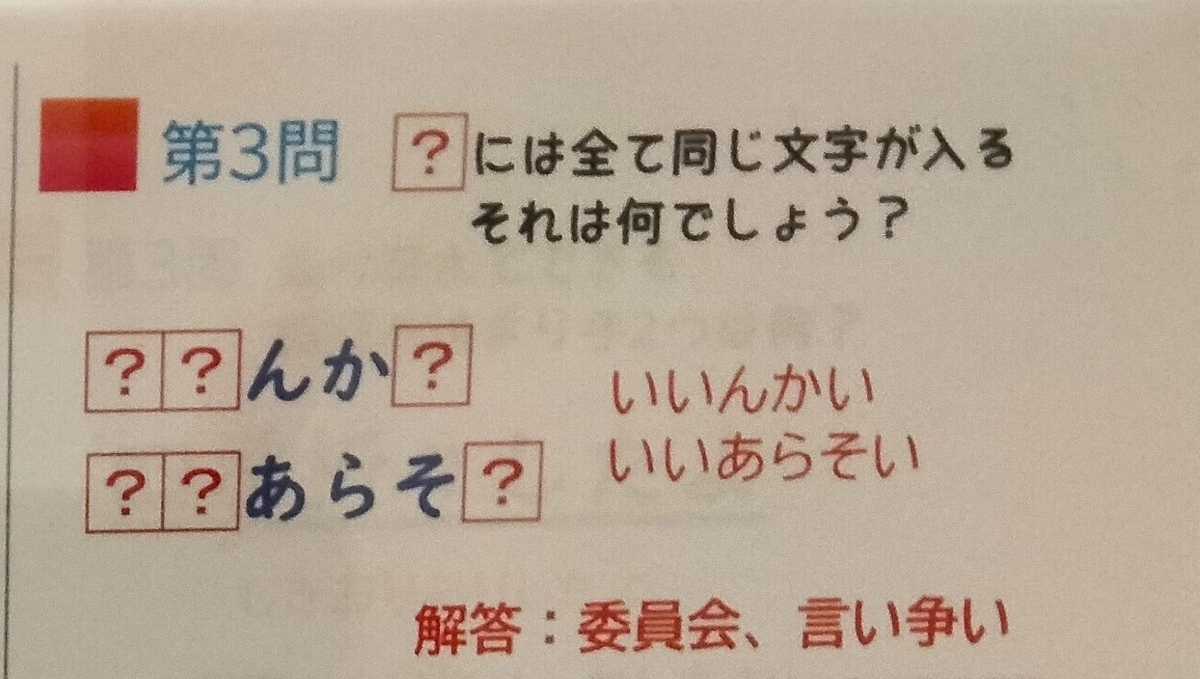 第3問 ?には全て同じ文字が入る
それは何でしょう？
??んか?
いいんかい
??あらそ?
いいあらそい
解答：委員会、言い争い